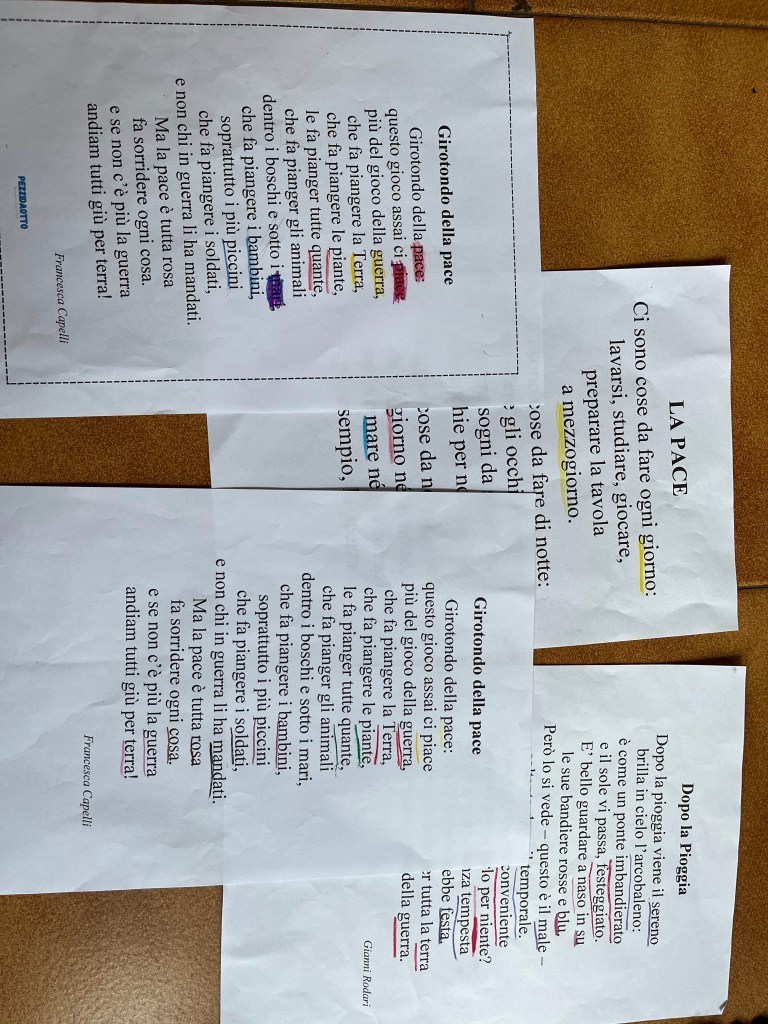 Girotondo della pace
Girotondo della pace:
questo gioco assai ci piace
più del gioco della guerra,
che fa piangere la Terra,
che fa piangere le piante,
le fa pianger tutte quante,
che fa pianger gli animali
dentro i boschi e sotto i
che fa piangere i bambini,
soprattutto i più piccini
che fa piangere i soldati,
e non chi in guerra li ha mandati.
Ma la pace è tutta rosa
fa sorridere ogni cosa
e se non c'è più la guerra
andiam tutti giù per terra!
Francesca Capelli
PEZZIDAOTTO
LA PACE
Ci sono cose da fare ogni giorno:
lavarsi, studiare, giocare,
preparare la tavola
a mezzogiorno.
cose da fare di notte:
gli occhi
sogni da
hie per no
cose da n
giorno né
mare né
sempio,
Girotondo della pace
Girotondo della pace:
questo gioco assai ci piace
più del gioco della guerra,
che fa piangere la Terra,
che fa piangere le piante,
le fa pianger tutte quante,
che fa pianger gli animali
dentro i boschi e sotto i mari,
che fa piangere i bambini,
soprattutto i più piccini
che fa piangere i soldati,
e non chi in guerra li ha mandati.
Ma la pace è tutta rosa
fa sorridere ogni cosa
e se non c'è più la guerra
andiam tutti giù per terra!
Francesca Capelli
Dopo la Pioggia
Dopo la pioggia viene il sereno
brilla in cielo l'arcobaleno:
è come un ponte imbandierato
e il sole vi passa, festeggiato.
E' bello guardare a naso in su
le sue bandiere rosse e blu.
Però lo si vede – questo è il male –
il temporale.
conveniente
lo per niente?
nza tempesta
ebbe festa.
er tutta la terra
della guerra.
Gianni Rodari